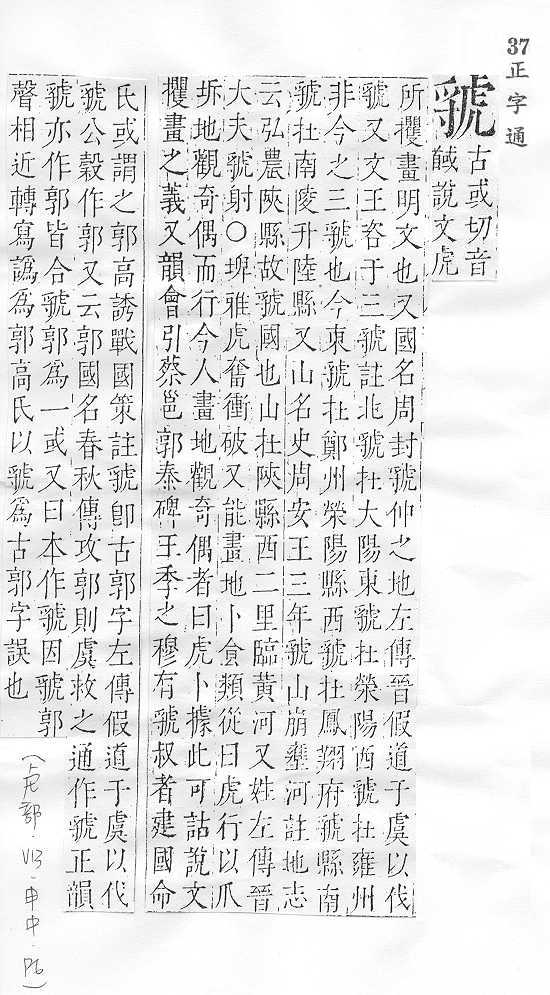 37
正字通
虢
古或切音
馘說文虎
所攫畫明文也又國名周封虢仲之地左傳晉假道于虞以伐
虢又文王咨于二虢註北虢在大陽東虢在滎陽西虢在雍州
非今之三虢也今東虢在鄭州滎陽縣西虢在鳳翔府虢縣南
虢在南陵升陸縣又山名史周安王三年虢山崩壅河註地志
云弘農陝縣故虢國也山在陝縣西二里臨黃河又姓左傳晉
大夫虢射○埤雅虎奮衝破又能畫地卜食類從曰虎行以爪
坼地觀奇偶而行今人畫地觀奇偶者曰虎卜據此可詁說文
攫畫之義又韻會引蔡邕郭泰碑王季之穆有虢叔者建國命
氏或謂之郭高誘戰國策註虢卽古郭字左傳假道于虞以伐
虢公穀作郭又云郭國名春秋傳攻郭則虞救之通作虢正韻
虢亦作郭皆合虢郭爲一或又曰本作虢因虢郭
聲相近轉寫譌爲郭高氏以虢爲古郭字誤也
(虍部.V13.申中.P6)